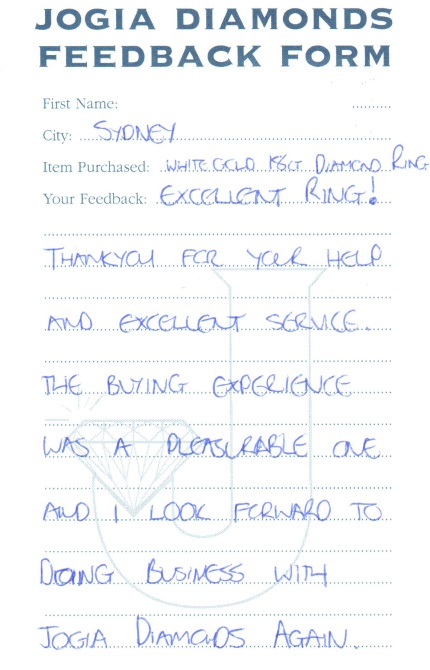 JOGIA DIAMONDS
FEEDBACK FORM
First Name:
City: SYDNEY
Item Purchased: WHITE GOLD 18CT DIAMOND RING
Your Feedback: EXCELLENT RING!
THANKYOU FOR YOUR HELP
AND EXCELLENT SERVICE.
THE BUYING EXPERIENCE
WAS A PLEASURABLE ONE
AND I LOOK FORWARD TO
DOING BUSINESS WITH
JOGIA DIAMONDS AGAIN.